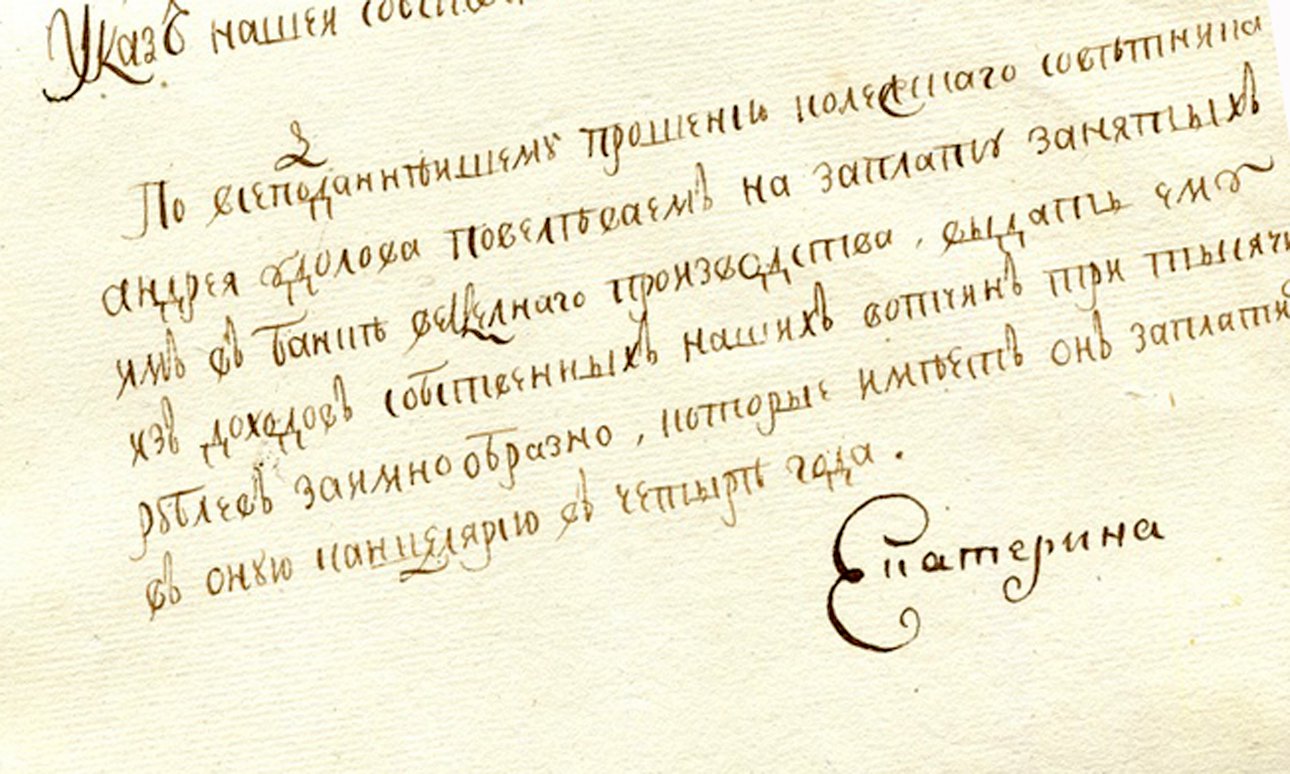 Указъ нашей
По всеподданнѣишему прошенію колежскаго совѣтника
андрея удолова повелѣваемъ на заплату занятыхъ
имъ въ банкѣ вексѣлнаго производства, выдать ему
изъ доходовъ собственныхъ нашихъ вотчинъ три тысячи
рублевъ заимнообразно, которые имѣетъ онъ заплати
въ оную канцелярію въ четырѣ года.
Екатерина